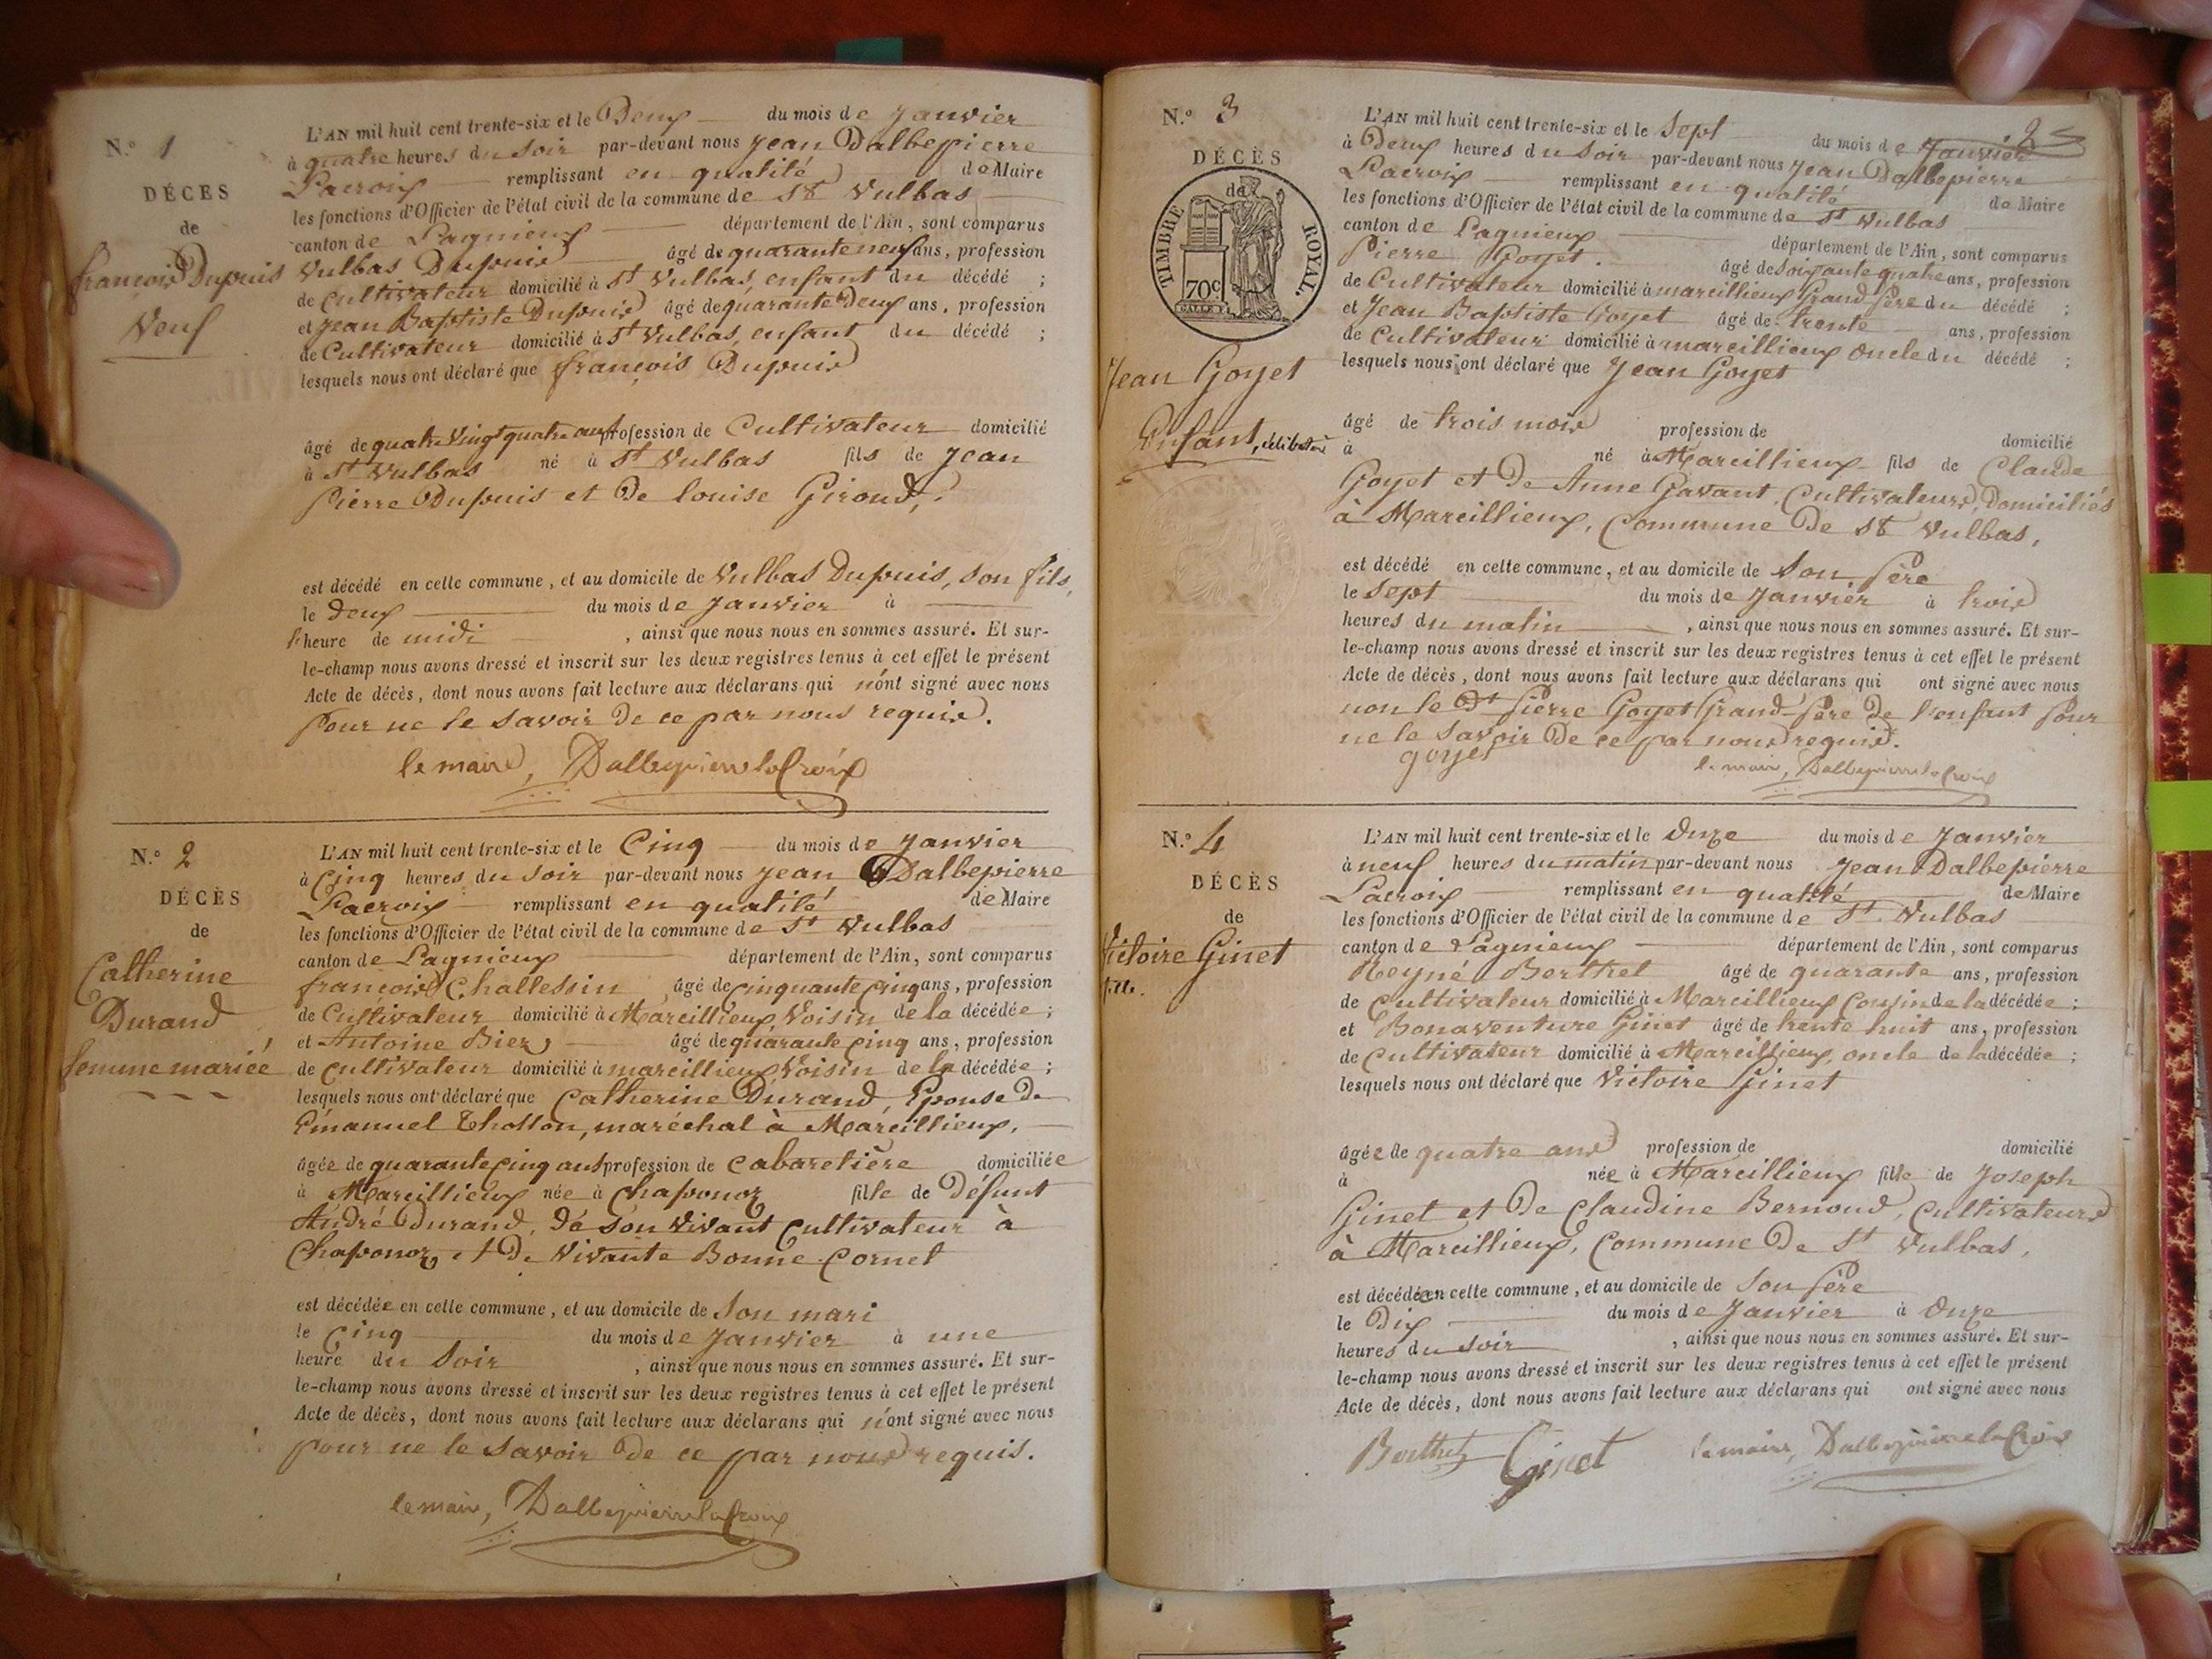 N.° 1
DÉCES
de
françois Dupuis
Veuf
L'AN mil huit cent trente-six et le Deux du mois de Janvier
à quatre heures du Soir par-devant nous Jean Dalbepierre
Lacroix remplissant en qualité de Maire
les fonctions d'Officier de l'état civil de la commune de St Vulbas
canton de Lagnieux département de l'Ain, sont comparus
Vulbas Dupuis âgé de quarante neuf ans, profession
de Cultivateur domicilié à St Vulbas, enfant du décédé ;
et Jean Baptiste Dupuis âgé de quarante Deux ans, profession
de Cultivateur domicilié à St Vulbas, enfant du décédé ;
lesquels nous ont déclaré que françois Dupuis
âgé de quatre Vingt quatre ans profession de Cultivateur domicilié
à St Vulbas né à St Vulbas fils de Jean
Pierre Dupuis et De louise Giroud,
est décédé en cette commune, et au domicile de Vulbas Dupuis, son fils,
le Deux du mois de Janvier à
l'heure de midi , ainsi que nous nous en sommes assuré. Et sur-
le-champ nous avons dressé et inscrit sur les deux registres tenus à cet effet le présent
Acte de décès, dont nous avons fait lecture aux déclarans qui n'ont signé avec nous
Pour ne le savoir De ce par nous requis.
le maire, Dallepierre la Croix
N.° 2
DÉCÈS
de
Catherine
Durand
femme mariée
L'AN mil huit cent trente-six et le Cinq du mois de Janvier
à Cinq heures du Soir par-devant nous Jean Dalbepierre
Lacroix remplissant en qualité de Maire
les fonctions d'Officier de l'état civil de la commune de St Vulbas
canton de Lagnieux département de l'Ain, sont comparus
françois Challessin âgé de Cinquante Cinq ans, profession
de Cultivateur domicilié à Marcillieux Voisin de la décédée ;
et Antoine Bier âgé de quarante Cinq ans, profession
de Cultivateur domicilié à marcillieux Voisin de la décédée ;
lesquels nous ont déclaré que Catherine Durand, Epouse De
Emanuel Thollon, maréchal à Marcillieux,
âgée de quarante Cinq ans profession de Cabaretière domiciliée
à Marcillieux née à Chaponoz fille de Défunt
André Durand, De Son Vivant Cultivateur à
Chaponoz et De Vivante Bonne Cornet
est décédée en cette commune, et au domicile de Son mari
le Cinq du mois de Janvier à une
heure du Soir , ainsi que nous nous en sommes assuré. Et sur-
le-champ nous avons dressé et inscrit sur les deux registres tenus à cet effet le présent
Acte de décès, dont nous avons fait lecture aux déclarans qui n'ont signé avec nous
pour ne le savoir De ce par nous requis.
le maire, Dallepierre la Croix
N.° 3
DÉCÈS
de
TIMBRE ROYAL.
70 c.
Jean Goyet
Enfant, célibataire
2
L'AN mil huit cent trente-six et le Sept du mois de Janvier
à Deux heures du Soir par-devant nous Jean Dalbepierre
Lacroix remplissant en qualité de Maire
les fonctions d'Officier de l'état civil de la commune de St Vulbas
canton de Lagnieux département de l'Ain, sont comparus
Pierre Goyet. âgé de Soixante quatre ans, profession
de Cultivateur domicilié à marcillieux Grand Père du décédé ;
et Jean Baptiste Goyet âgé de trente ans, profession
de Cultivateur domicilié à marcillieux oncle du décédé ;
lesquels nous ont déclaré que Jean Goyet
âgé de trois mois profession de domicilié
à né à Marcillieux fils de Claude
Goyet et De Anne Gavant, Cultivateurs, Domiciliés
à Marcillieux, Commune De St Vulbas,
est décédé en cette commune, et au domicile de Son Père
le Sept du mois de Janvier à trois
heures du matin , ainsi que nous nous en sommes assuré. Et sur-
le-champ nous avons dressé et inscrit sur les deux registres tenus à cet effet le présent
Acte de décès, dont nous avons fait lecture aux déclarans qui ont signé avec nous
non le Dt Pierre Goyet Grand-Père De l'enfant Pour
ne le savoir De ce par nous requis.
goyet
le maire, Dallepierre la Croix
N.° 4
DÉCÈS
de
Victoire Ginet
fille.
L'AN mil huit cent trente-six et le Onze du mois de Janvier
à neuf heures du matin par-devant nous Jean Dalbepierre
Lacroix remplissant en qualité de Maire
les fonctions d'Officier de l'état civil de la commune de St Vulbas
canton de Lagnieux département de l'Ain, sont comparus
Reyné Berthet âgé de quarante ans, profession
de Cultivateur domicilié à Marcillieux Cousin de la décédée ;
et Bonaventure Ginet âgé de trente huit ans, profession
de Cultivateur domicilié à Marcillieux, oncle de la décédée ;
lesquels nous ont déclaré que Victoire Ginet
âgée de quatre ans profession de domicilié
à née à Marcillieux fille de Joseph
Ginet et De Claudine Bernoud, Cultivateurs
à Marcillieux, Commune De St Vulbas,
est décédée en cette commune, et au domicile de Son Père
le Dix du mois de Janvier à Onze
heures du Soir , ainsi que nous nous en sommes assuré. Et sur-
le-champ nous avons dressé et inscrit sur les deux registres tenus à cet effet le présent
Acte de décès, dont nous avons fait lecture aux déclarans qui ont signé avec nous
Berthet Ginet le maire, Dallepierre la Croix